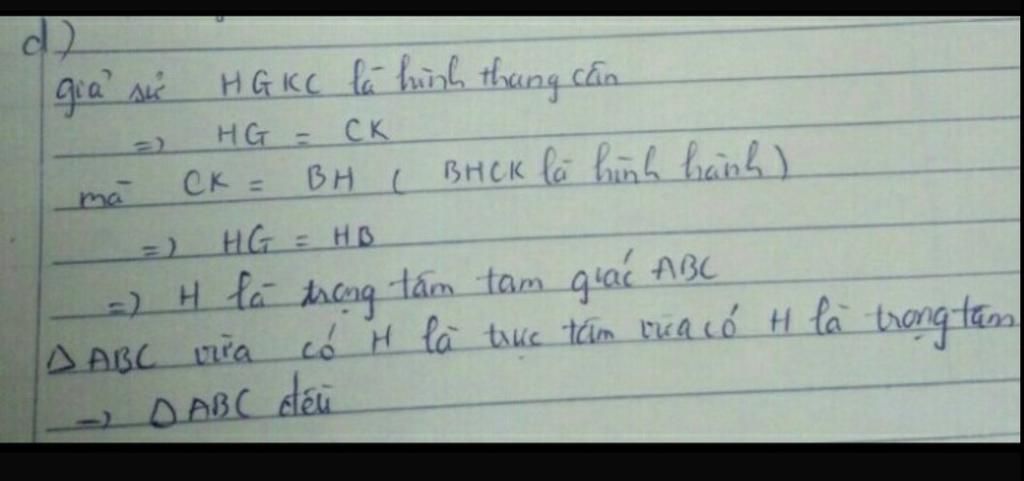 d)
giả sử HGKC là hình thang cân
=> HG = CK
mà CK = BH ( BHCK là hình hành )
=> HG = HB
=> H là trọng tâm tam giác ABC
△ABC vừa có H là trực tâm vừa có H là trọng tâm
=> △ABC đều